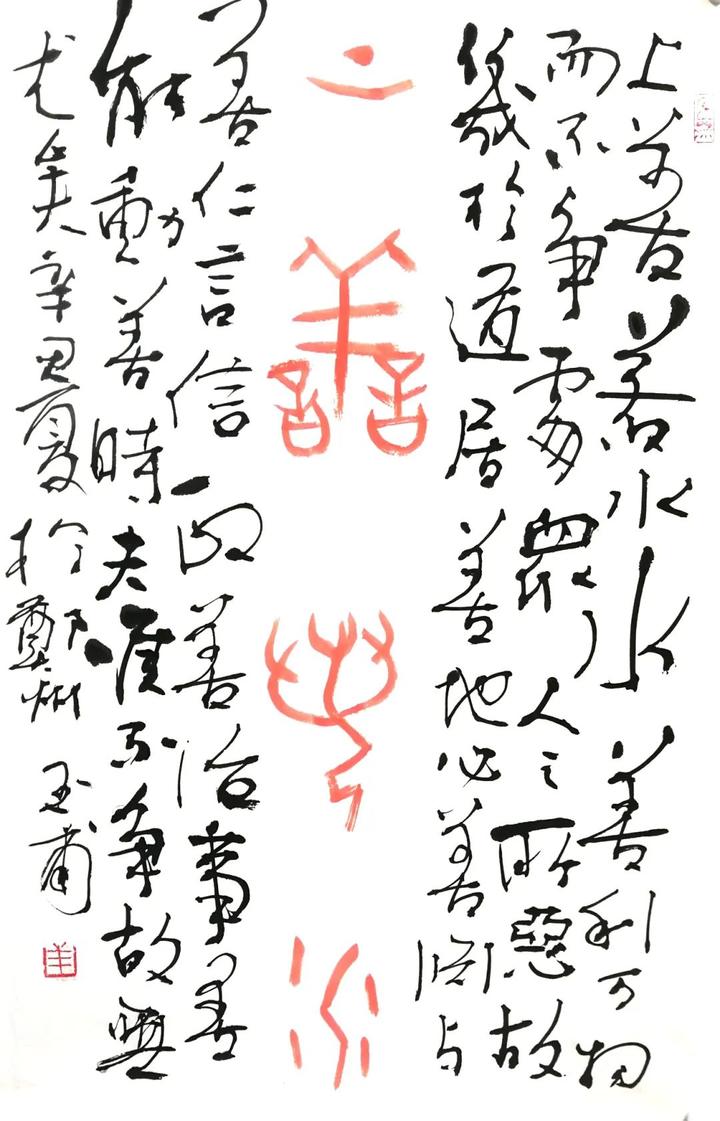 上善若水水善利万物
而不争處眾人之所惡故
幾於道居善地心善淵与
上善若水
善仁言信政善治事善
能動善時夫唯不争故無
尤矣辛丑夏於鄭州玉甫